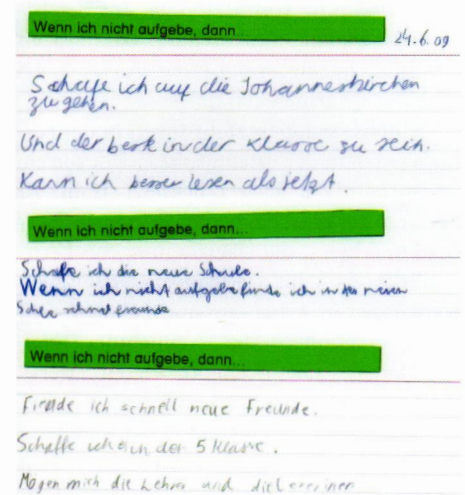 Wenn ich nicht aufgebe, dann...
24.6.09
Schafe ich auf die Johanneskirchen
zu gehen.
Und der beste in der Klasse zu sein.
Kann ich besser lesen als jetzt.
Wenn ich nicht aufgebe, dann...
Schafe ich die neue Schule.
Wenn ich nicht aufgebe finde ich in der neuen
schnel freunde
Wenn ich nicht aufgebe, dann...
Finde ich schnell neue Freunde.
Schaffe ich auch der 5 Klasse.
Mögen mich die Lehrer und die Lererinen